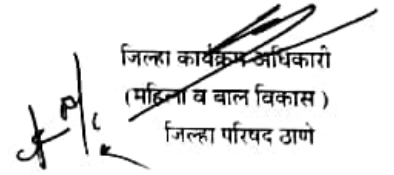 जिल्हा कार्यक्रम अधिकारी
(महिला व बाल विकास )
जिल्हा परिषद ठाणे